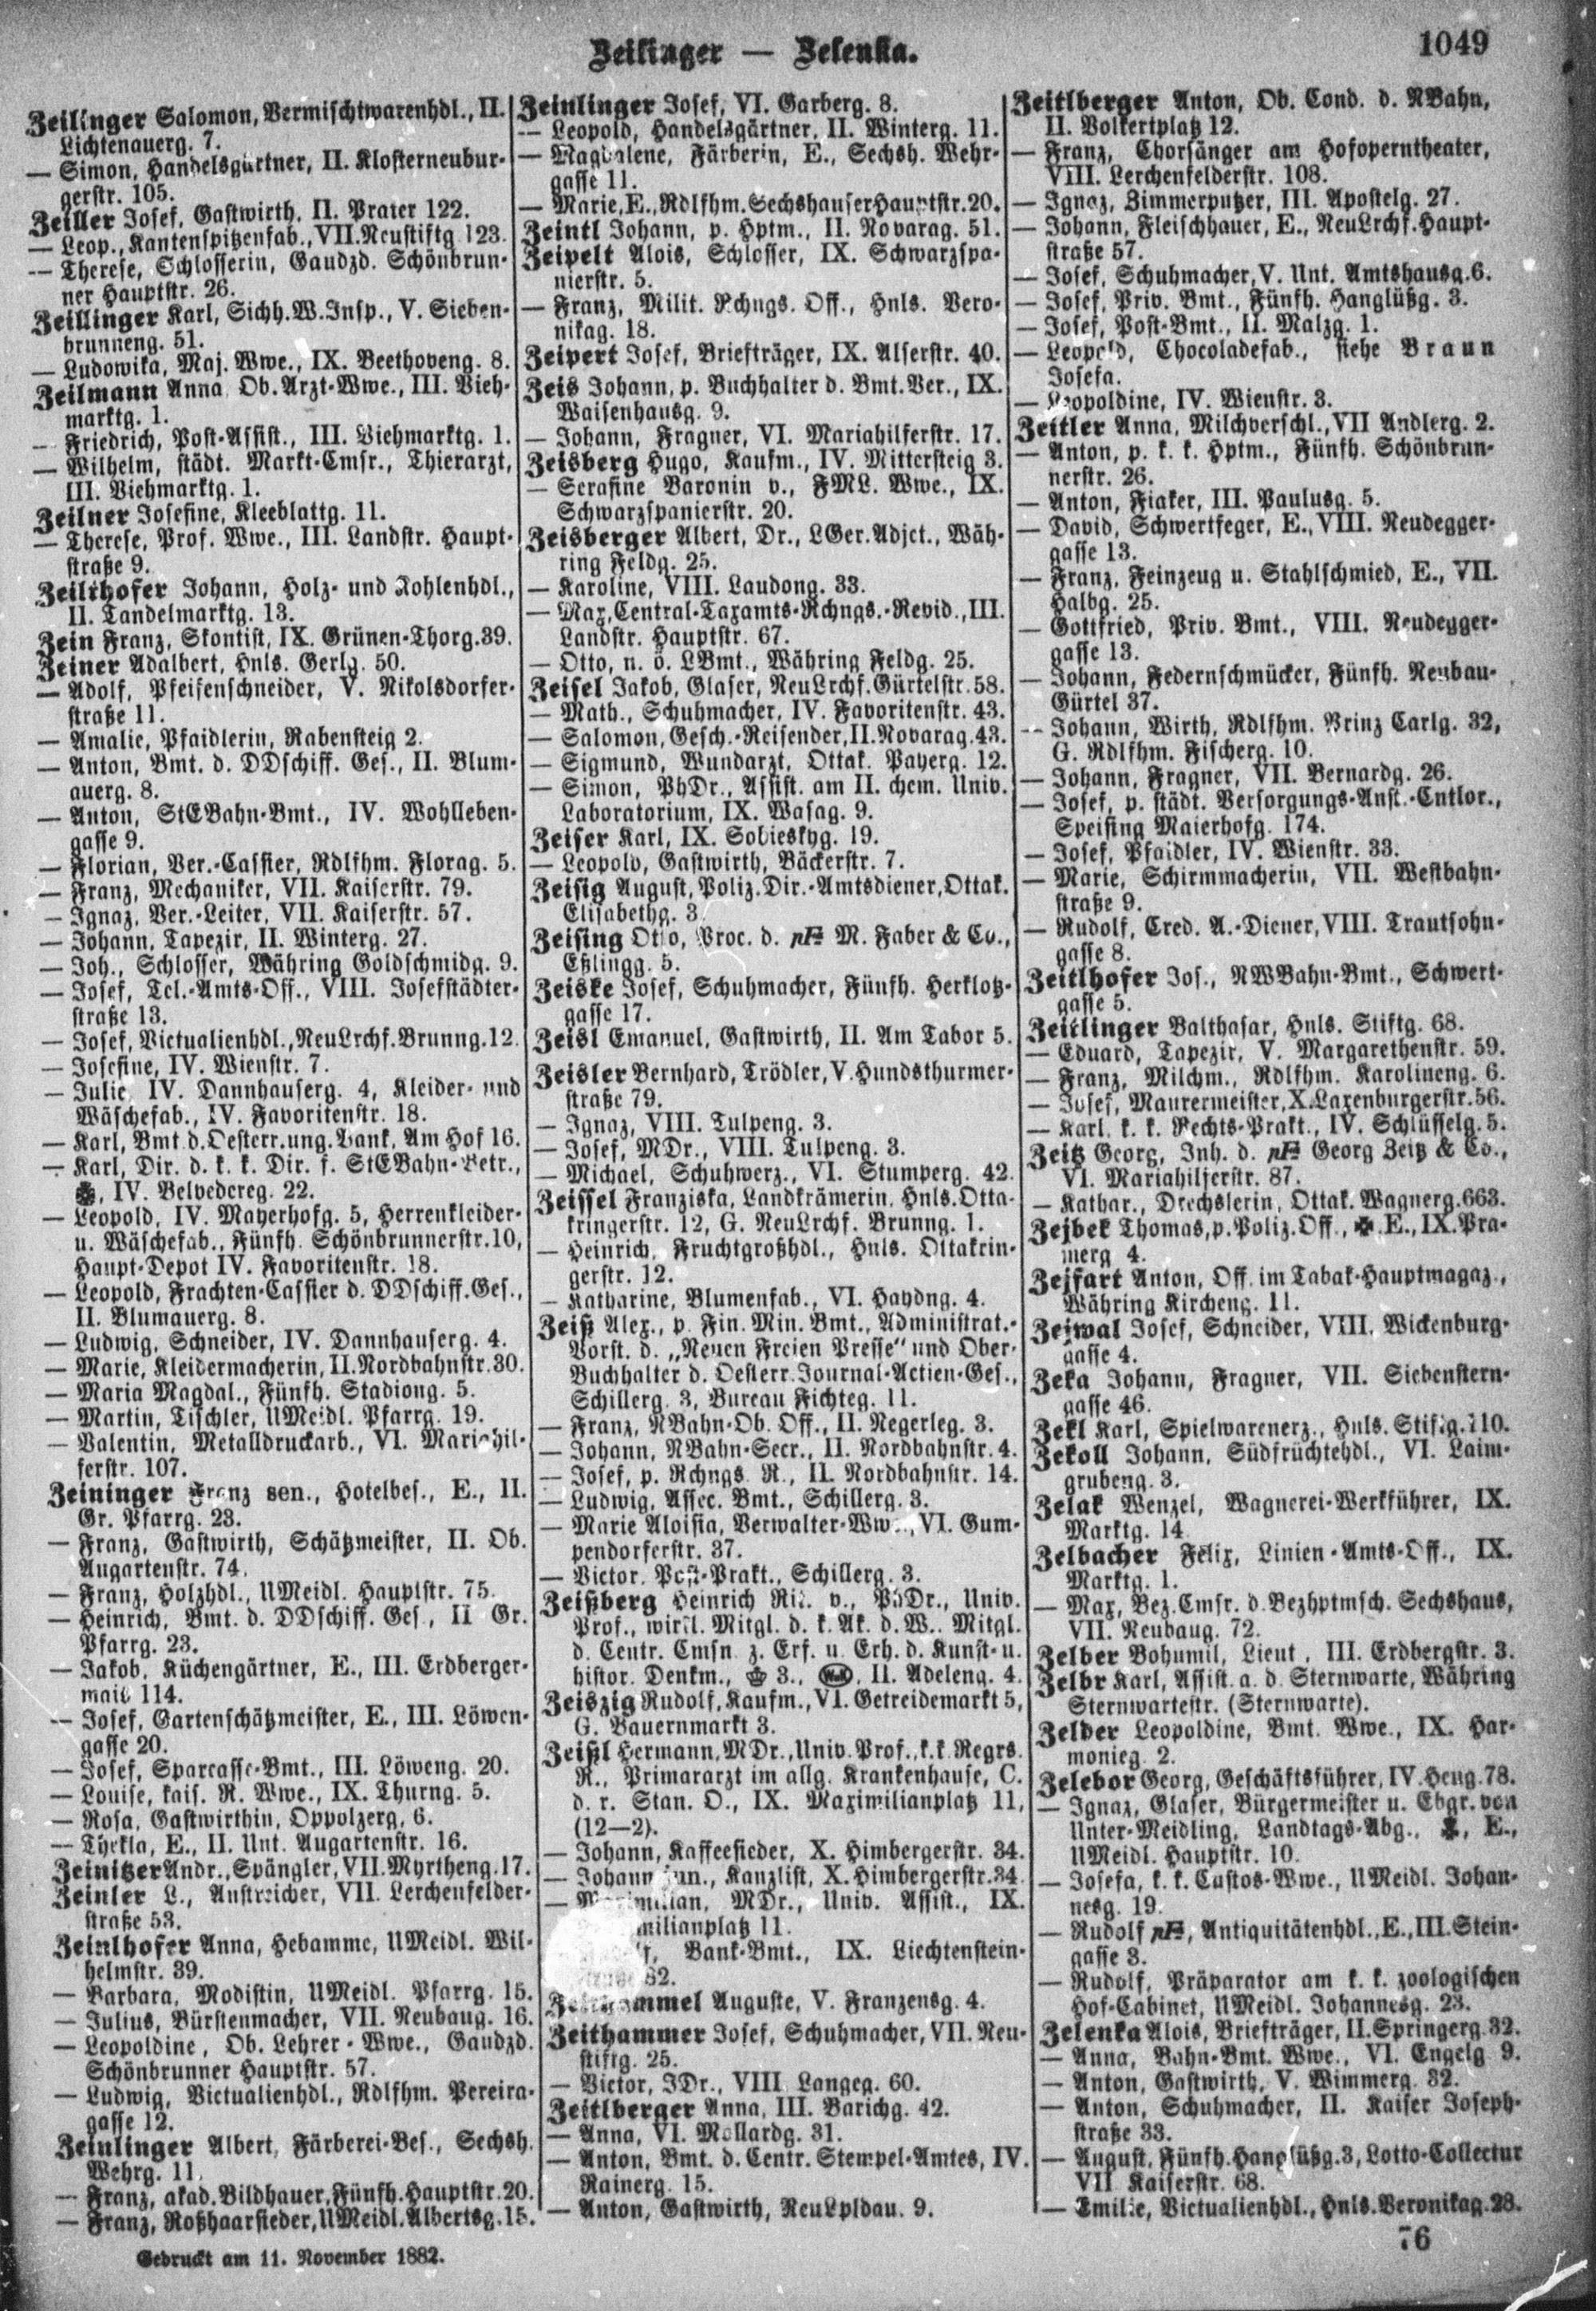 Zeilinger — Zelenka.
1049
Zeilinger Salomon, Vermischtwarenhdl., II.
Lichtenauerg. 7.
— Simon, Handelsgärtner, II. Klosterneubur-
gerstr. 105.
Zeiller Josef, Gastwirth, II. Prater 122.
— Leop., Kantenspitzenfab., VII. Neustiftg. 123.
— Therese, Schlosserin, Gaudzd. Schönbrun-
ner Hauptstr. 26.
Zeillinger Karl, Sichh. W. Insp., V. Sieben-
brunneng. 51.
— Ludowika, Maj. Wwe., IX. Beethoveng. 8.
Zeilmann Anna Ob. Arzt-Wwe., III. Vieh-
marktg. 1.
— Friedrich, Post-Assist., III. Viehmarktg. 1.
— Wilhelm, städt. Markt-Cmsr., Thierarzt,
III. Viehmarktg. 1.
Zeilner Josefine, Kleeblattg. 11.
— Therese, Prof. Wwe., III. Landstr. Haupt-
straße 9.
Zeilrhofer Johann, Holz- und Kohlenhdl.,
II. Tandelmarktg. 13.
Zein Franz, Skontist, IX. Grünen-Thorg. 39.
Zeiner Adalbert, Hnls. Gerlg. 50.
— Adolf, Pfeifenschneider, V. Nikolsdorfer-
straße 11.
— Amalie, Pfaidlerin, Rabensteig 2.
— Anton, Bmt. d. DDschiff. Ges., II. Blum-
auerg. 8.
— Anton, StEBahn-Bmt., IV. Wohlleben-
gasse 9.
— Florian, Ver.-Cassier, Rdlfhm. Florag. 5.
— Franz, Mechaniker, VII. Kaiserstr. 79.
— Ignaz, Ver.-Leiter, VII. Kaiserstr. 57.
— Johann, Tapezir, II. Winterg. 27.
— Joh., Schlosser, Währing Goldschmidg. 9.
— Josef, Tel.-Amts-Off., VIII. Josefstädter-
straße 13.
— Josef, Victualienhdl., NeuLrchf. Brunng. 12.
— Josefine, IV. Wienstr. 7.
— Julie, IV. Dannhauserg. 4, Kleider- und
Wäschefab., IV. Favoritenstr. 18.
— Karl, Bmt. d. Oesterr. ung. Bank, Am Hof 16.
— Karl, Dir. d. k. k. Dir. f. StEBahn-Betr.,
IV. Belvedereg. 22.
— Leopold, IV. Mayerhofg. 5, Herrenkleider-
u. Wäschefab., Fünfh. Schönbrunnerstr. 10,
Haupt-Depot IV. Favoritenstr. 18.
— Leopold, Frachten-Cassier d. DDschiff. Ges.,
II. Blumauerg. 8.
— Ludwig, Schneider, IV. Dannhauserg. 4.
— Marie, Kleidermacherin, II. Nordbahnstr. 30.
— Maria Magdal., Fünfh. Stadiong. 5.
— Martin, Tischler, UMeidl. Pfarrg. 19.
— Valentin, Metalldruckarb., VI. Mariahil-
ferstr. 107.
Zeininger Franz sen., Hotelbes., E., II.
Gr. Pfarrg. 23.
— Franz, Gastwirth, Schätzmeister, II. Ob.
Augartenstr. 74.
— Franz, Holzhdl., UMeidl. Hauptstr. 75.
— Heinrich, Bmt. d. DDschiff. Ges., II Gr.
Pfarrg. 23.
— Jakob, Küchengärtner, E., III. Erdberger-
mais 114.
— Josef, Gartenschätzmeister, E., III. Löwen-
gasse 20.
— Josef, Sparcasse-Bmt., III. Löweng. 20.
— Louise, kais. R. Wwe., IX. Thurng. 5.
— Rosa, Gastwirthin, Oppolzerg. 6.
— Thekla, E., II. Unt. Augartenstr. 16.
Zeinitzer Andr., Spängler, VII. Myrtheng. 17.
Zeinler L., Anstreicher, VII. Lerchenfelder-
straße 53.
Zeinlhofer Anna, Hebamme, UMeidl. Wil-
helmstr. 39.
— Barbara, Modistin, UMeidl. Pfarrg. 15.
— Julius, Bürstenmacher, VII. Neubaug. 16.
— Leopoldine, Ob. Lehrer-Wwe., Gaudzd.
Schönbrunner Hauptstr. 57.
— Ludwig, Victualienhdl., Rdlfhm. Pereira-
gasse 12.
Zeinlinger Albert, Färberei-Bes., Sechsh.
Wehrg. 11.
— Franz, akad. Bildhauer, Fünfh. Hauptstr. 20.
— Franz, Roßhaarsieder, UMeidl. Albertsg. 15.
Gedruckt am 11. November 1882.
Zeinlinger Josef, VI. Garberg. 8.
— Leopold, Handelsgärtner, II. Winterg. 11.
— Magdalene, Färberin, E., Sechsh. Wehr-
gasse 11.
— Marie, E., Rdlfhm. Sechshauser Hauptstr. 20.
Zeintl Johann, p. Hptm., II. Novarag. 51.
Zeipelt Alois, Schlosser, IX. Schwarzspa-
nierstr. 5.
— Franz, Milit. Rchngs. Off., Hnls. Vero-
nikag. 18.
Zeipert Josef, Briefträger, IX. Alserstr. 40.
Zeis Johann, p. Buchhalter d. Bmt. Ver., IX.
Waisenhausg. 9.
— Johann, Fragner, VI. Mariahilferstr. 17.
Zeisberg Hugo, Kaufm., IV. Mittersteig 3.
— Serafine Baronin v., FML. Wwe., IX.
Schwarzspanierstr. 20.
Zeisberger Albert, Dr., LGer. Adjct., Wäh-
ring Feldg. 25.
— Karoline, VIII. Laudong. 33.
— Max, Central-Taxamts-Rchngs.-Revid., III.
Landstr. Hauptstr. 67.
— Otto, n. ö. LBmt., Währing Feldg. 25.
Zeisel Jakob, Glaser, NeuLrchf. Gürtelstr. 58.
— Math., Schuhmacher, IV. Favoritenstr. 43.
— Salomon, Gesch.-Reisender, II. Novarag. 43.
— Sigmund, Wundarzt, Ottak. Payerg. 12.
— Simon, PhDr., Assist. am II. chem. Univ.
Laboratorium, IX. Wasag. 9.
Zeiser Karl, IX. Sobieskyg. 19.
— Leopold, Gastwirth, Bäckerstr. 7.
Zeisig August, Poliz. Dir.-Amtsdiener, Ottak.
Elisabethg. 3
Zeising Otto, Proc. d. pF M. Faber & Co.,
Eßlingg. 5.
Zeiske Josef, Schuhmacher, Fünfh. Herklotz-
gasse 17.
Zeisl Emanuel, Gastwirth, II. Am Tabor 5.
Zeisler Bernhard, Trödler, V. Hundsthurmer-
straße 79.
— Ignaz, VIII. Tulpeng. 3.
— Josef, MDr., VIII. Tulpeng. 3.
— Michael, Schuhwerz., VI. Stumperg. 42.
Zeissel Franziska, Landkrämerin, Hnls. Otta-
kringerstr. 12, G. NeuLrchf. Brunng. 1.
— Heinrich, Fruchtgroßhdl., Hnls. Ottakrin-
gerstr. 12.
— Katharine, Blumenfab., VI. Haydng. 4.
Zeiß Alex., p. Fin. Min. Bmt., Administrat.-
Vorst. d. „Neuen Freien Presse“ und Ober-
Buchhalter d. Oesterr. Journal-Actien-Ges.,
Schillerg. 3, Bureau Fichteg. 11.
— Franz, NBahn-Ob. Off., II. Negerleg. 3.
— Johann, NBahn-Secr., II. Nordbahnstr. 4.
— Josef, p. Rchngs. R., II. Nordbahnstr. 14.
— Ludwig, Assec. Bmt., Schillerg. 3.
— Marie Aloisia, Verwalter-Wwe., VI. Gum-
pendorferstr. 37.
— Victor, Post-Prakt., Schillerg. 3.
Zeißberg Heinrich Rit. v., PhDr., Univ.
Prof., wirkl. Mitgl. d. k. Ak. d. W., Mitgl.
d. Centr. Cmsn. z. Erf. u. Erh. d. Kunst- u.
histor. Denkm., 3., II. Adeleng. 4.
Zeiszig Rudolf, Kaufm., VI. Getreidemarkt 5,
G. Bauernmarkt 3.
Zeißl Hermann, MDr., Univ. Prof., k. k. Regrs.
R., Primararzt im allg. Krankenhause, C.
d. r. Stan. O., IX. Maximilianplatz 11,
(12—2).
— Johann, Kaffeesieder, X. Himbergerstr. 34.
— Johann jun., Kanzlist, X. Himbergerstr. 34.
— Maximilian, MDr., Univ. Assist., IX.
milianplatz 11.
Bank-Bmt., IX. Liechtenstein-
32.
Auguste, V. Franzensg. 4.
Zeithammer Josef, Schuhmacher, VII. Neu-
stiftg. 25.
— Victor, JDr., VIII. Langeg. 60.
Zeitlberger Anna, III. Barichg. 42.
— Anna, VI. Mollardg. 31.
— Anton, Bmt. d. Centr. Stempel-Amtes, IV.
Rainerg. 15.
— Anton, Gastwirth, NeuLpldau. 9.
Zeitlberger Anton, Ob. Cond. d. NBahn,
II. Volkertplatz 12.
— Franz, Chorsänger am Hofoperntheater,
VIII. Lerchenfelderstr. 108.
— Ignaz, Zimmerputzer, III. Apostelg. 27.
— Johann, Fleischhauer, E., NeuLrchf. Haupt-
straße 57.
— Josef, Schuhmacher, V. Unt. Amtshausg. 6.
— Josef, Priv. Bmt., Fünfh. Hanglüßg. 3.
— Josef, Post-Bmt., II. Malzg. 1.
— Leopold, Chocoladefab., siehe Braun
Josefa.
— Leopoldine, IV. Wienstr. 3.
Zeitler Anna, Milchverschl., VII Andlerg. 2.
— Anton, p. k. k. Hptm., Fünfh. Schönbrun-
nerstr. 26.
— Anton, Fiaker, III. Paulusg. 5.
— David, Schwertfeger, E., VIII. Neudegger-
gasse 13.
— Franz, Feinzeug u. Stahlschmied, E., VII.
Halbg. 25.
— Gottfried, Priv. Bmt., VIII. Neudegger-
gasse 13.
— Johann, Federnschmücker, Fünfh. Neubau-
Gürtel 37.
— Johann, Wirth, Rdlfhm. Prinz Carlg. 32,
G. Rdlfhm. Fischerg. 10.
— Johann, Fragner, VII. Bernardg. 26.
— Josef, p. städt. Versorgungs-Anst.-Cntlor.,
Speising Maierhofg. 174.
— Josef, Pfaidler, IV. Wienstr. 33.
— Marie, Schirmmacherin, VII. Westbahn-
straße 9.
— Rudolf, Cred. A.-Diener, VIII. Trautsohn-
gasse 8.
Zeitlhofer Jos., NWBahn-Bmt., Schwert-
gasse 5.
Zeitlinger Balthasar, Hnls. Stiftg. 68.
— Eduard, Tapezir, V. Margarethenstr. 59.
— Franz, Milchm., Rdlfhm. Karolineng. 6.
— Josef, Maurermeister, X. Laxenburgerstr. 56.
— Karl, k. k. Rechts-Prakt., IV. Schlüsselg. 5.
Zeitz Georg, Inh. d. pF Georg Zeitz & Co.,
VI. Mariahilferstr. 87.
— Kathar., Drechslerin, Ottak. Wagnerg. 663.
Zejbek Thomas, p. Poliz. Off., ✠, E., IX. Pra-
merg. 4.
Zejfart Anton, Off. im Tabak-Hauptmagaz.,
Währing Kircheng. 11.
Zejwal Josef, Schneider, VIII. Wickenburg-
gasse 4.
Zeka Johann, Fragner, VII. Siebenstern-
gasse 46.
Zekl Karl, Spielwarenerz., Hnls. Stiftg. 110.
Zekoll Johann, Südfrüchtehdl., VI. Laim-
grubeng. 3.
Zelak Wenzel, Wagnerei-Werkführer, IX.
Marktg. 14.
Zelbacher Felix, Linien-Amts-Off., IX.
Marktg. 1.
— Max, Bez. Cmsr. d. Bezhptmsch. Sechshaus,
VII. Neubaug. 72.
Zelber Bohumil, Lieut., III. Erdbergstr. 3.
Zelbr Karl, Assist. a. d. Sternwarte, Währing
Sternwartestr. (Sternwarte).
Zelder Leopoldine, Bmt. Wwe., IX. Har-
monieg. 2.
Zelebor Georg, Geschäftsführer, IV. Heug. 78.
— Ignaz, Glaser, Bürgermeister u. Ehgr. von
Unter-Meidling, Landtags-Abg., E.,
UMeidl. Hauptstr. 10.
— Josefa, k. k. Custos-Wwe., UMeidl. Johan-
nesg. 19.
— Rudolf pF, Antiquitätenhdl., E., III. Stein-
gasse 3.
— Rudolf, Präparator am k. k. zoologischen
Hof-Cabinet, UMeidl. Johannesg. 23.
Zelenka Alois, Briefträger, II. Springerg. 32.
— Anna, Bahn-Bmt. Wwe., VI. Engelg. 9.
— Anton, Gastwirth, V. Wimmerg. 32.
— Anton, Schuhmacher, II. Kaiser Joseph-
straße 33.
— August, Fünfh. Hanglüßg. 3, Lotto-Collectur
VII Kaiserstr. 68.
— Emilie, Victualienhdl., Hnls. Veronikag. 28.
76